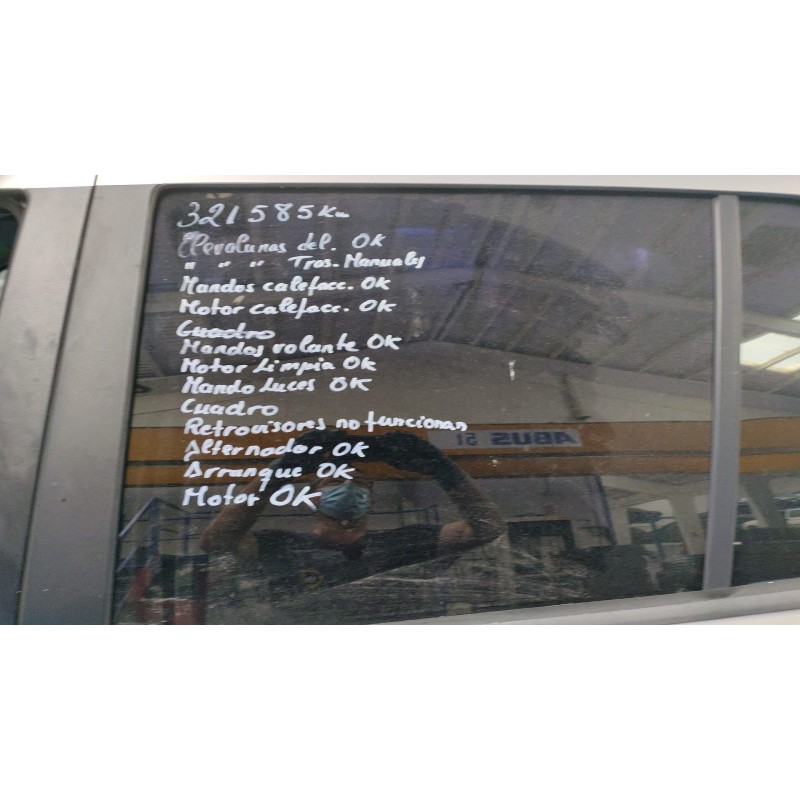 321585 Km
Elevalunas del. OK
" " " Tras. Manuales
Mandos calefacc. OK
Motor calefacc. OK
Cuadro
Mandos volante OK
Motor Limpia OK
Mando Luces OK
Cuadro
Retrovisores no funcionan
Alternador OK
Arranque OK
Motor OK
ABUS 5t